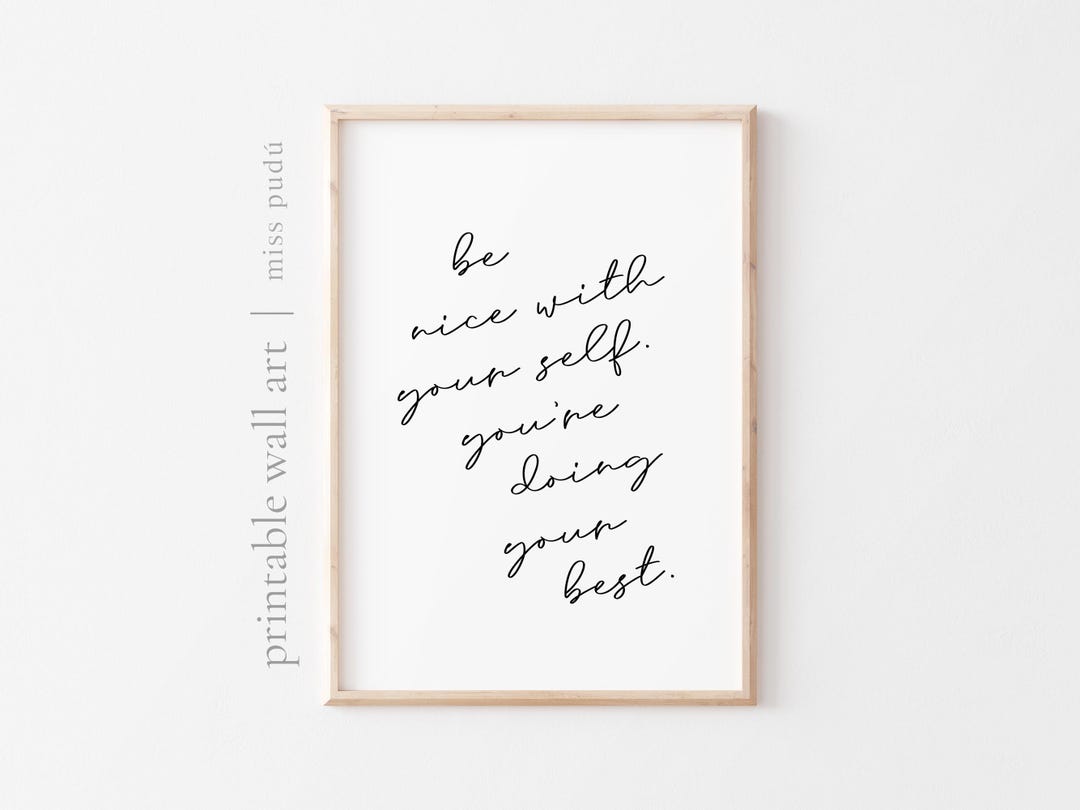 printable wall art | miss pudú
be
nice with
your self.
you're
doing
your
best.